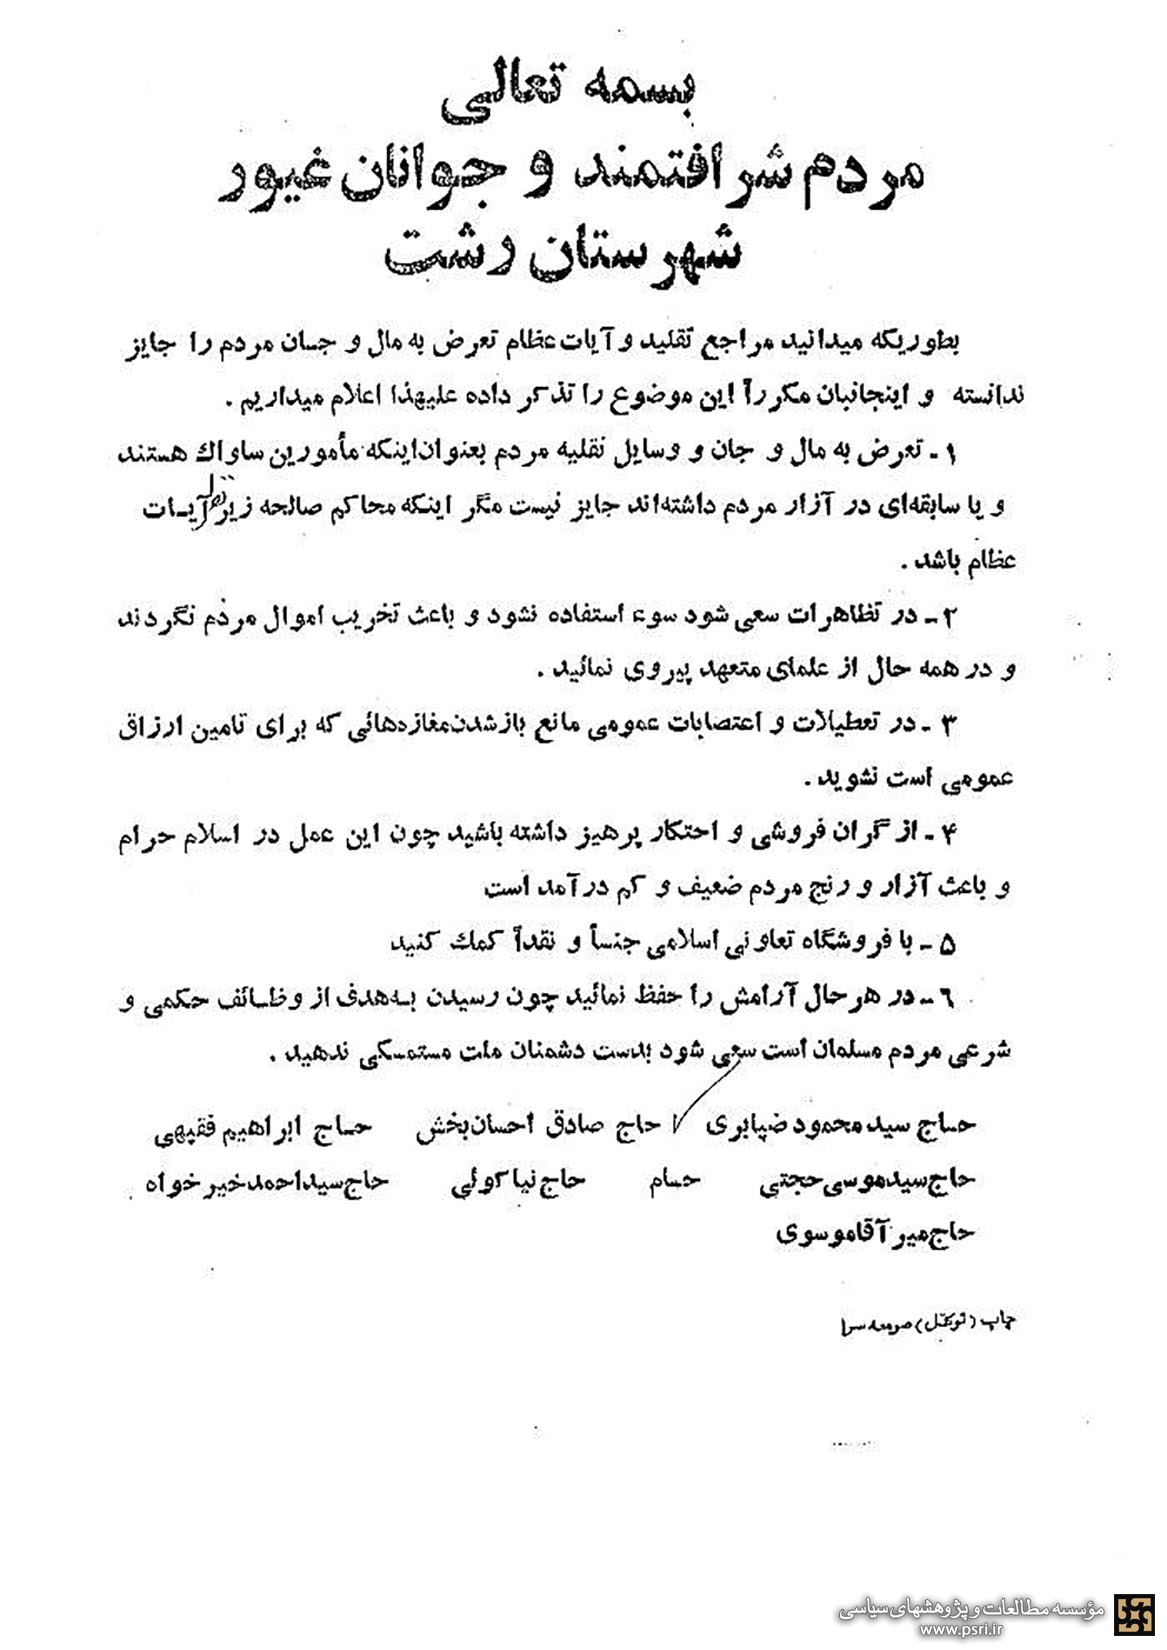 بسمه تعالی
مردم شرافتمند و جوانان غیور
شهرستان رشت
بطوریکه میدانید مراجع تقلید و آیات عظام تعرض به مال و جان مردم را جایز
ندانسته و اینجانبان مکررآ این موضوع را تذکر داده علیهذا اعلام میداریم .
۱ - تعرض به مال و جان و وسایل نقلیه مردم بعنوان‌اینکه مأمورین ساواك هستند
و یا سابقه‌ای در آزار مردم داشته‌اند جایز نیست مگر اینکه محاکم صالحه زیر نظر آیات
عظام باشد .
۲ - در تظاهرات سعی شود سوء استفاده نشود و باعث تخریب اموال مردم نگردند
و در همه حال از علمای متعهد پیروی نمائید .
۳ - در تعطیلات و اعتصابات عمومی مانع بازشدن‌مغازه‌هائی که برای تامین ارزاق
عمومی است نشوید .
۴ - از گران فروشی و احتکار پرهیز داشته باشید چون این عمل در اسلام حرام
و باعث آزار و رنج مردم ضعیف و کم درآمد است
۵ - با فروشگاه تعاونی اسلامی جنسآ و نقدآ کمك کنید
٦ - در هر حال آرامش را حفظ نمائید چون رسیدن به‌هدف از وظائف حکمی و
شرعی مردم مسلمان است سعی شود بدست دشمنان ملت مستمسکی ندهید .
حاج سید محمود ضیابری حاج صادق احسان‌بخش حاج ابراهیم فقیهی
حاج سید موسی حجتی حسام حاج نیاکوئی حاج سید احمد خیرخواه
حاج میر آقا موسوی
چاپ (توکل) صومعه سرا
مؤسسه مطالعات و پژوهشهای سیاسی
www.psri.ir